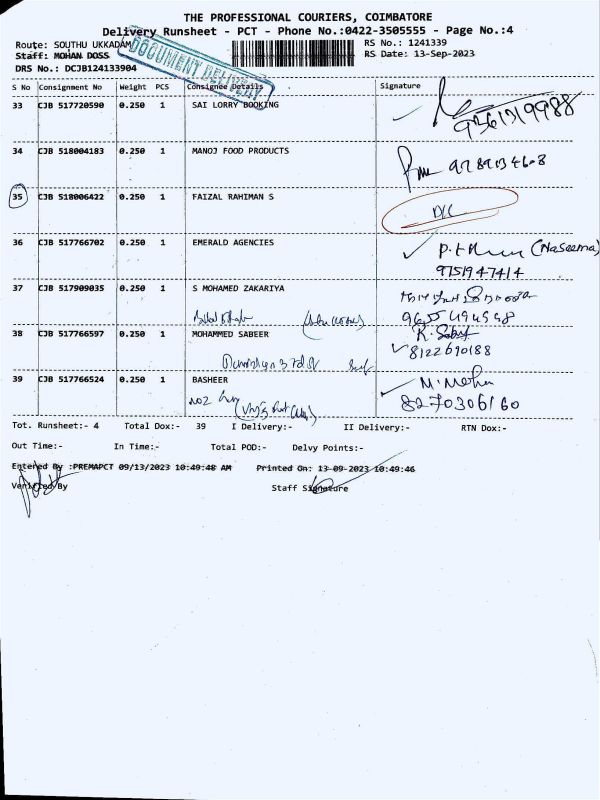 THE PROFESSIONAL COURIERS, COIMBATORE
Delivery Runsheet - PCT - Phone No.:0422-3505555 - Page No.:4
Route: SOUTHU UKKADAM
RS No.: 1241339
Staff: MOHAN DOSS
RS Date: 13-Sep-2023
DRS No.: DCJB124133904
DOCUMENT DELIVERY
S No Consignment No Weight PCS Consignee Details Signature
33 CJB 517720590 0.250 1 SAI LORRY BOOKING
9361319988
34 CJB 518004183 0.250 1 MANOJ FOOD PRODUCTS
35 CJB 518006422 0.250 1 FAIZAL RAHIMAN S
D/C
36 CJB 517766702 0.250 1 EMERALD AGENCIES
(Naseema)
9751947414
37 CJB 517909035 0.250 1 S MOHAMED ZAKARIYA
38 CJB 517766597 0.250 1 MOHAMMED SABEER
8122690188
39 CJB 517766524 0.250 1 BASHEER
8270306160
Tot. Runsheet:- 4 Total Dox:- 39 I Delivery:- II Delivery:- RTN Dox:-
Out Time:- In Time:- Total POD:- Delvy Points:-
Entered By :PREMAPCT 09/13/2023 10:49:48 AM Printed On: 13-09-2023 10:49:46
Verified By Staff Signature